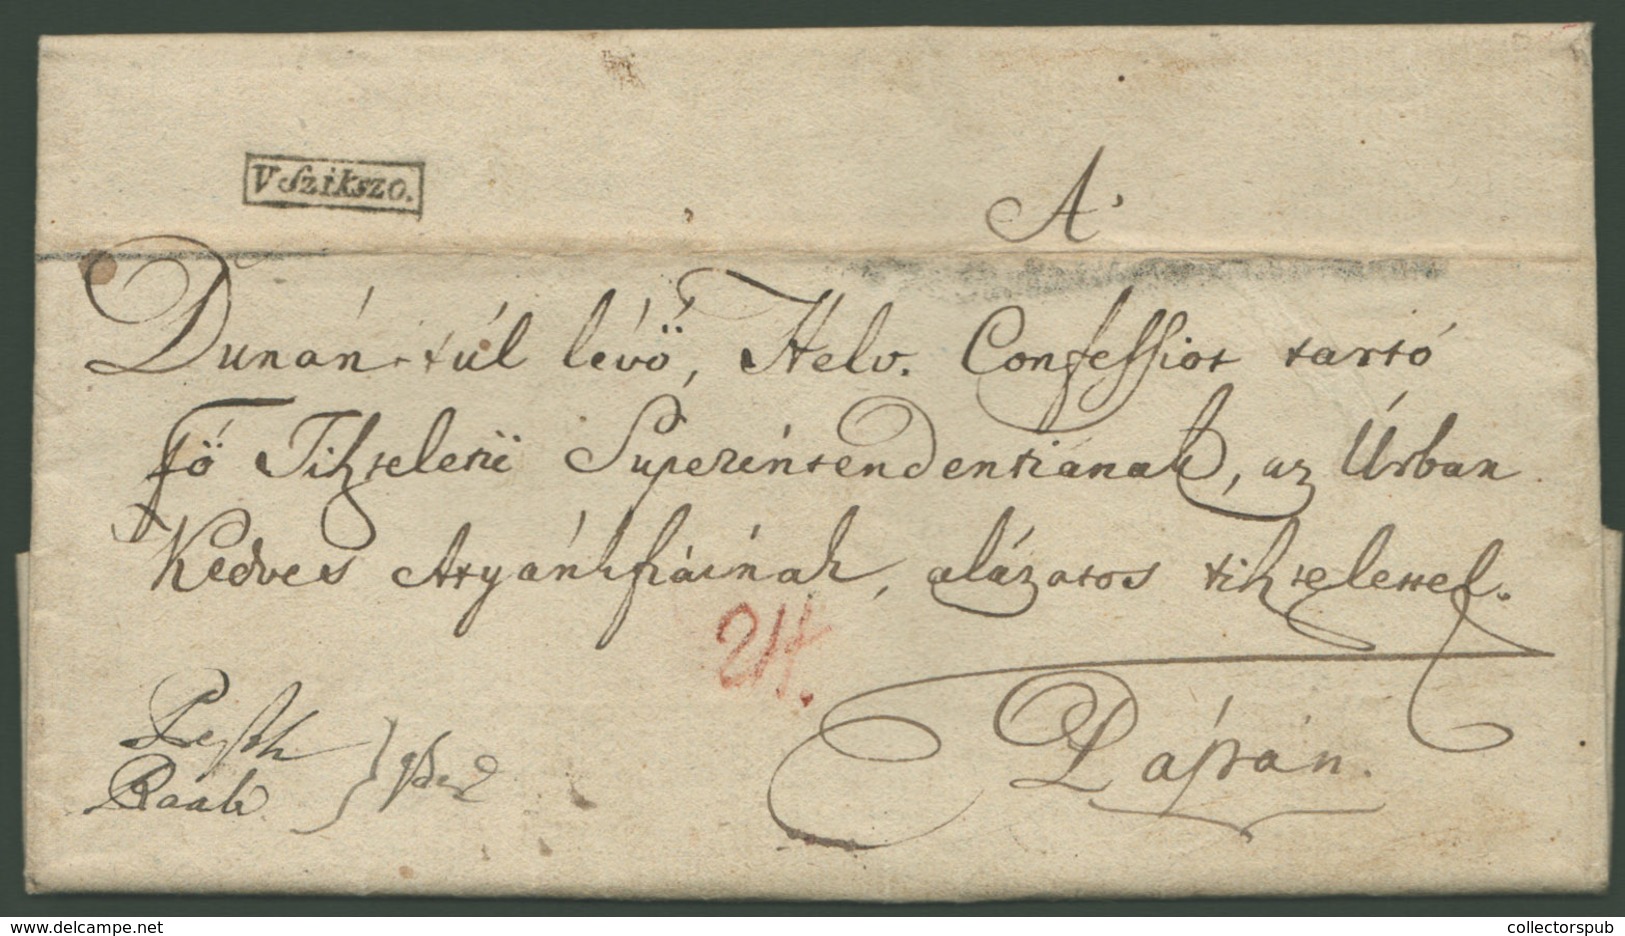 V Szikszo.
A'
Dunán-túl lévő, Helv. Confessiot tartó
fö Tiszteletü Superintendentiának, az Úrban
Kedves Attyánkfiáinak, alázatos tisztelettel.
24.
Pápán.
Pesth
Raab
delcampe.net
collectorspub